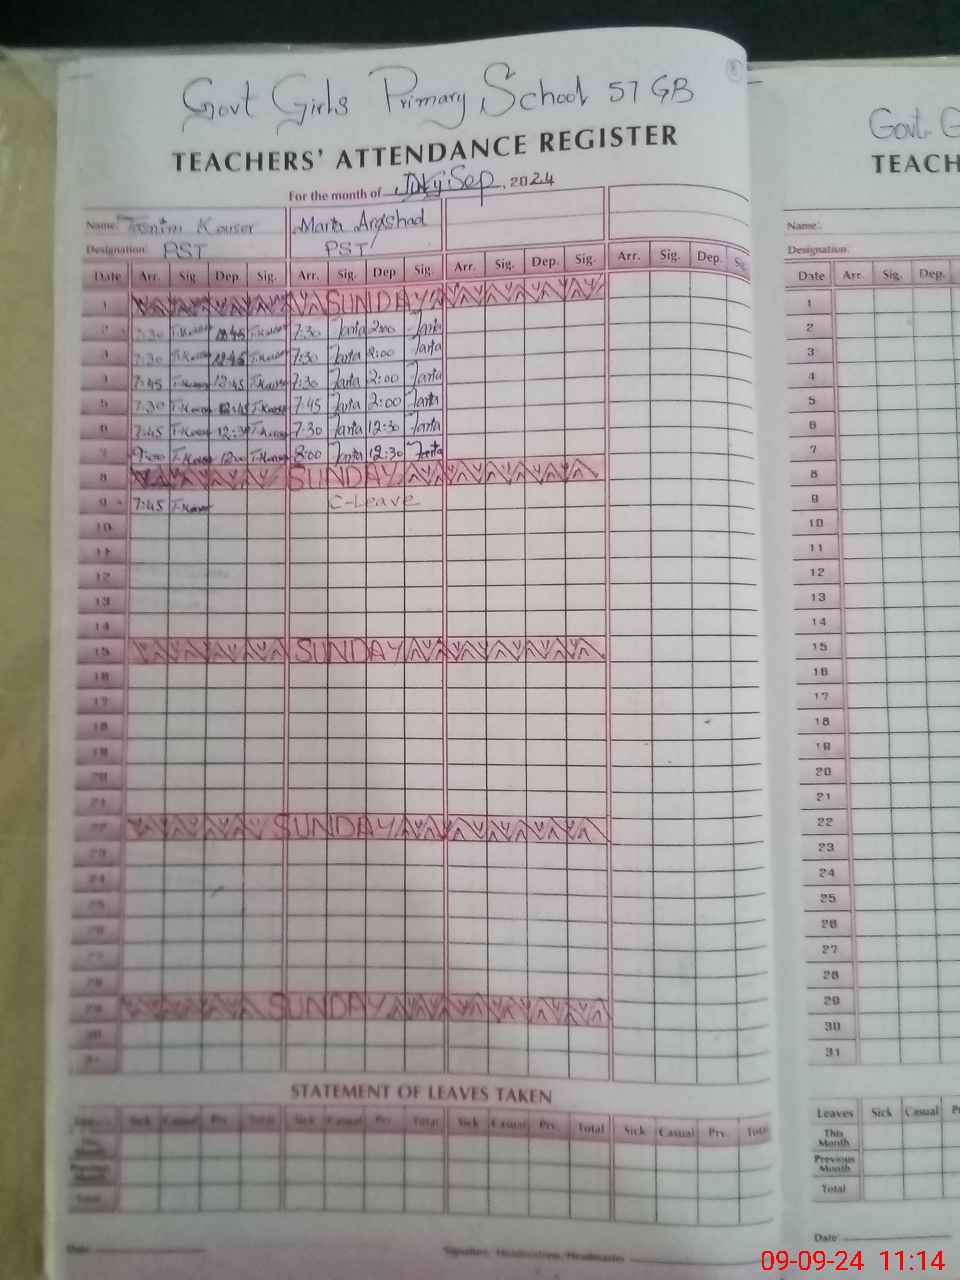 Govt Girls Primary School 57 GB
TEACHERS' ATTENDANCE REGISTER
For the month of Sep, 2024
Name: Kouser
Designation: PST PST
Date Arr. Sig. Dep. Sig. Arr. Sig. Dep Sig. Arr. Sig. Dep. Sig. Arr. Sig. Dep.
1 SUNDAY
2 7:30 T.Kouser 12:45 T.Kouser 7:30 2:00
3 7:30 T.Kouser 12:45 T.Kouser 7:30 2:00
4 7:45 T.Kouser 12:45 T.Kouser 7:30 2:00
5 7:30 T.Kouser 12:45 T.Kouser 7:45 2:00
6 7:45 T.Kouser 12:30 T.Kouser 7:30 12:30
7 T.Kouser T.Kouser 8:00 12:30
8 SUNDAY
9 7:45 T.Kouser C-Leave
10
11
12
13
14
15 SUNDAY
16
17
18
19
20
21
22 SUNDAY
23
24
25
26
27
28
29 SUNDAY
30
31
STATEMENT OF LEAVES TAKEN
Sick Casual Prv. Total Sick Casual Prv. Total Sick Casual Prv. Total Sick Casual Prv. Total
Month
Previous
Month
Total
Date
Govt. G
TEACH
Name:
Designation:
Date Arr. Sig. Dep.
1
2
3
4
5
6
7
8
9
10
11
12
13
14
15
16
17
18
19
20
21
22
23
24
25
26
27
28
29
30
31
Leaves Sick Casual
This
Month
Previous
Month
Total
Date
09-09-24 11:14